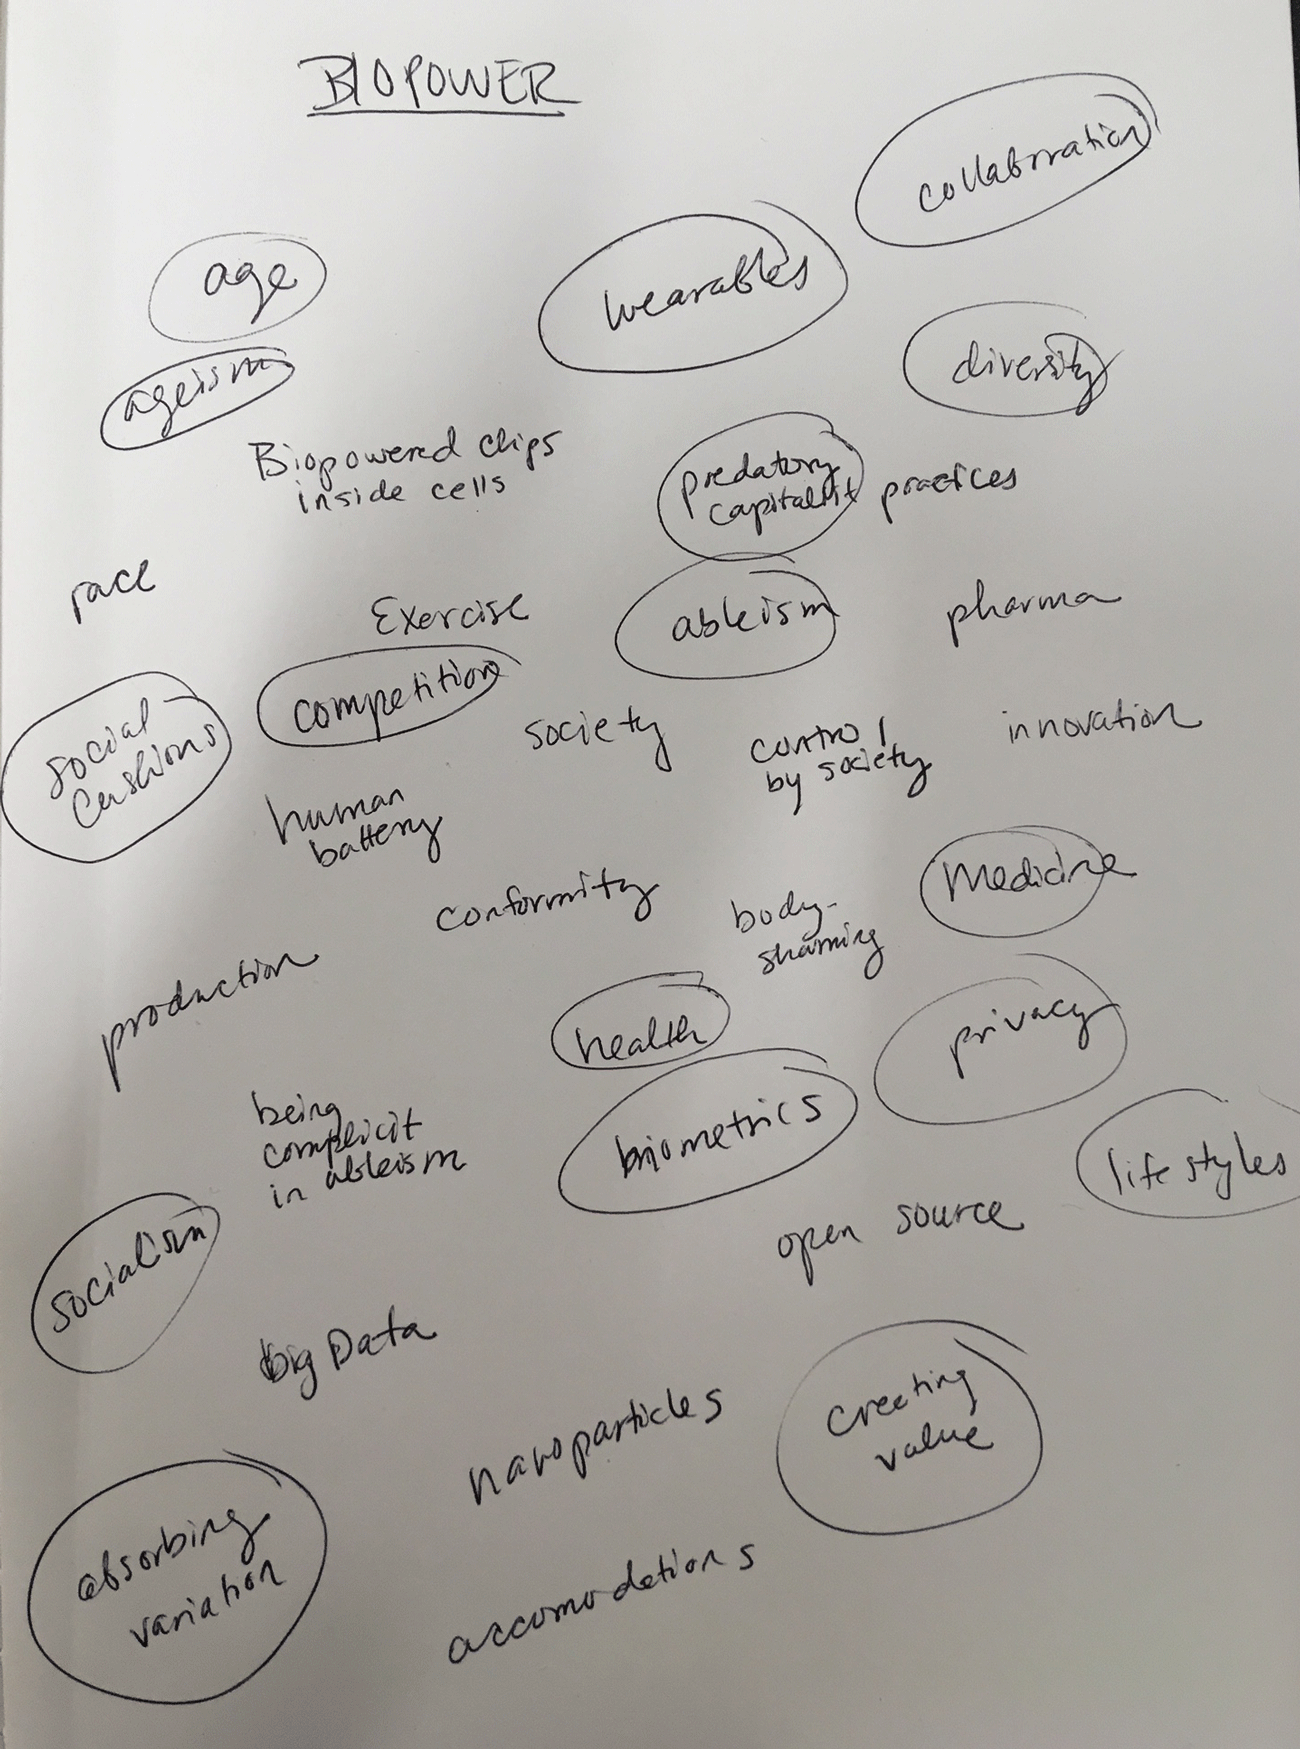 BIOPOWER
collaboration
age
wearables
ageism
diversity
Biopowered chips
inside cells
predatory
capitalist practices
race
Exercise
ableism
pharma
social
cushions
competition
society
control
by society
innovation
human
battery
conformity
body-
shaming
Medicine
production
health
privacy
being
complicit
in ableism
biometrics
lifestyles
socialism
open source
big Data
nanoparticles
creating
value
absorbing
variation
accomodations